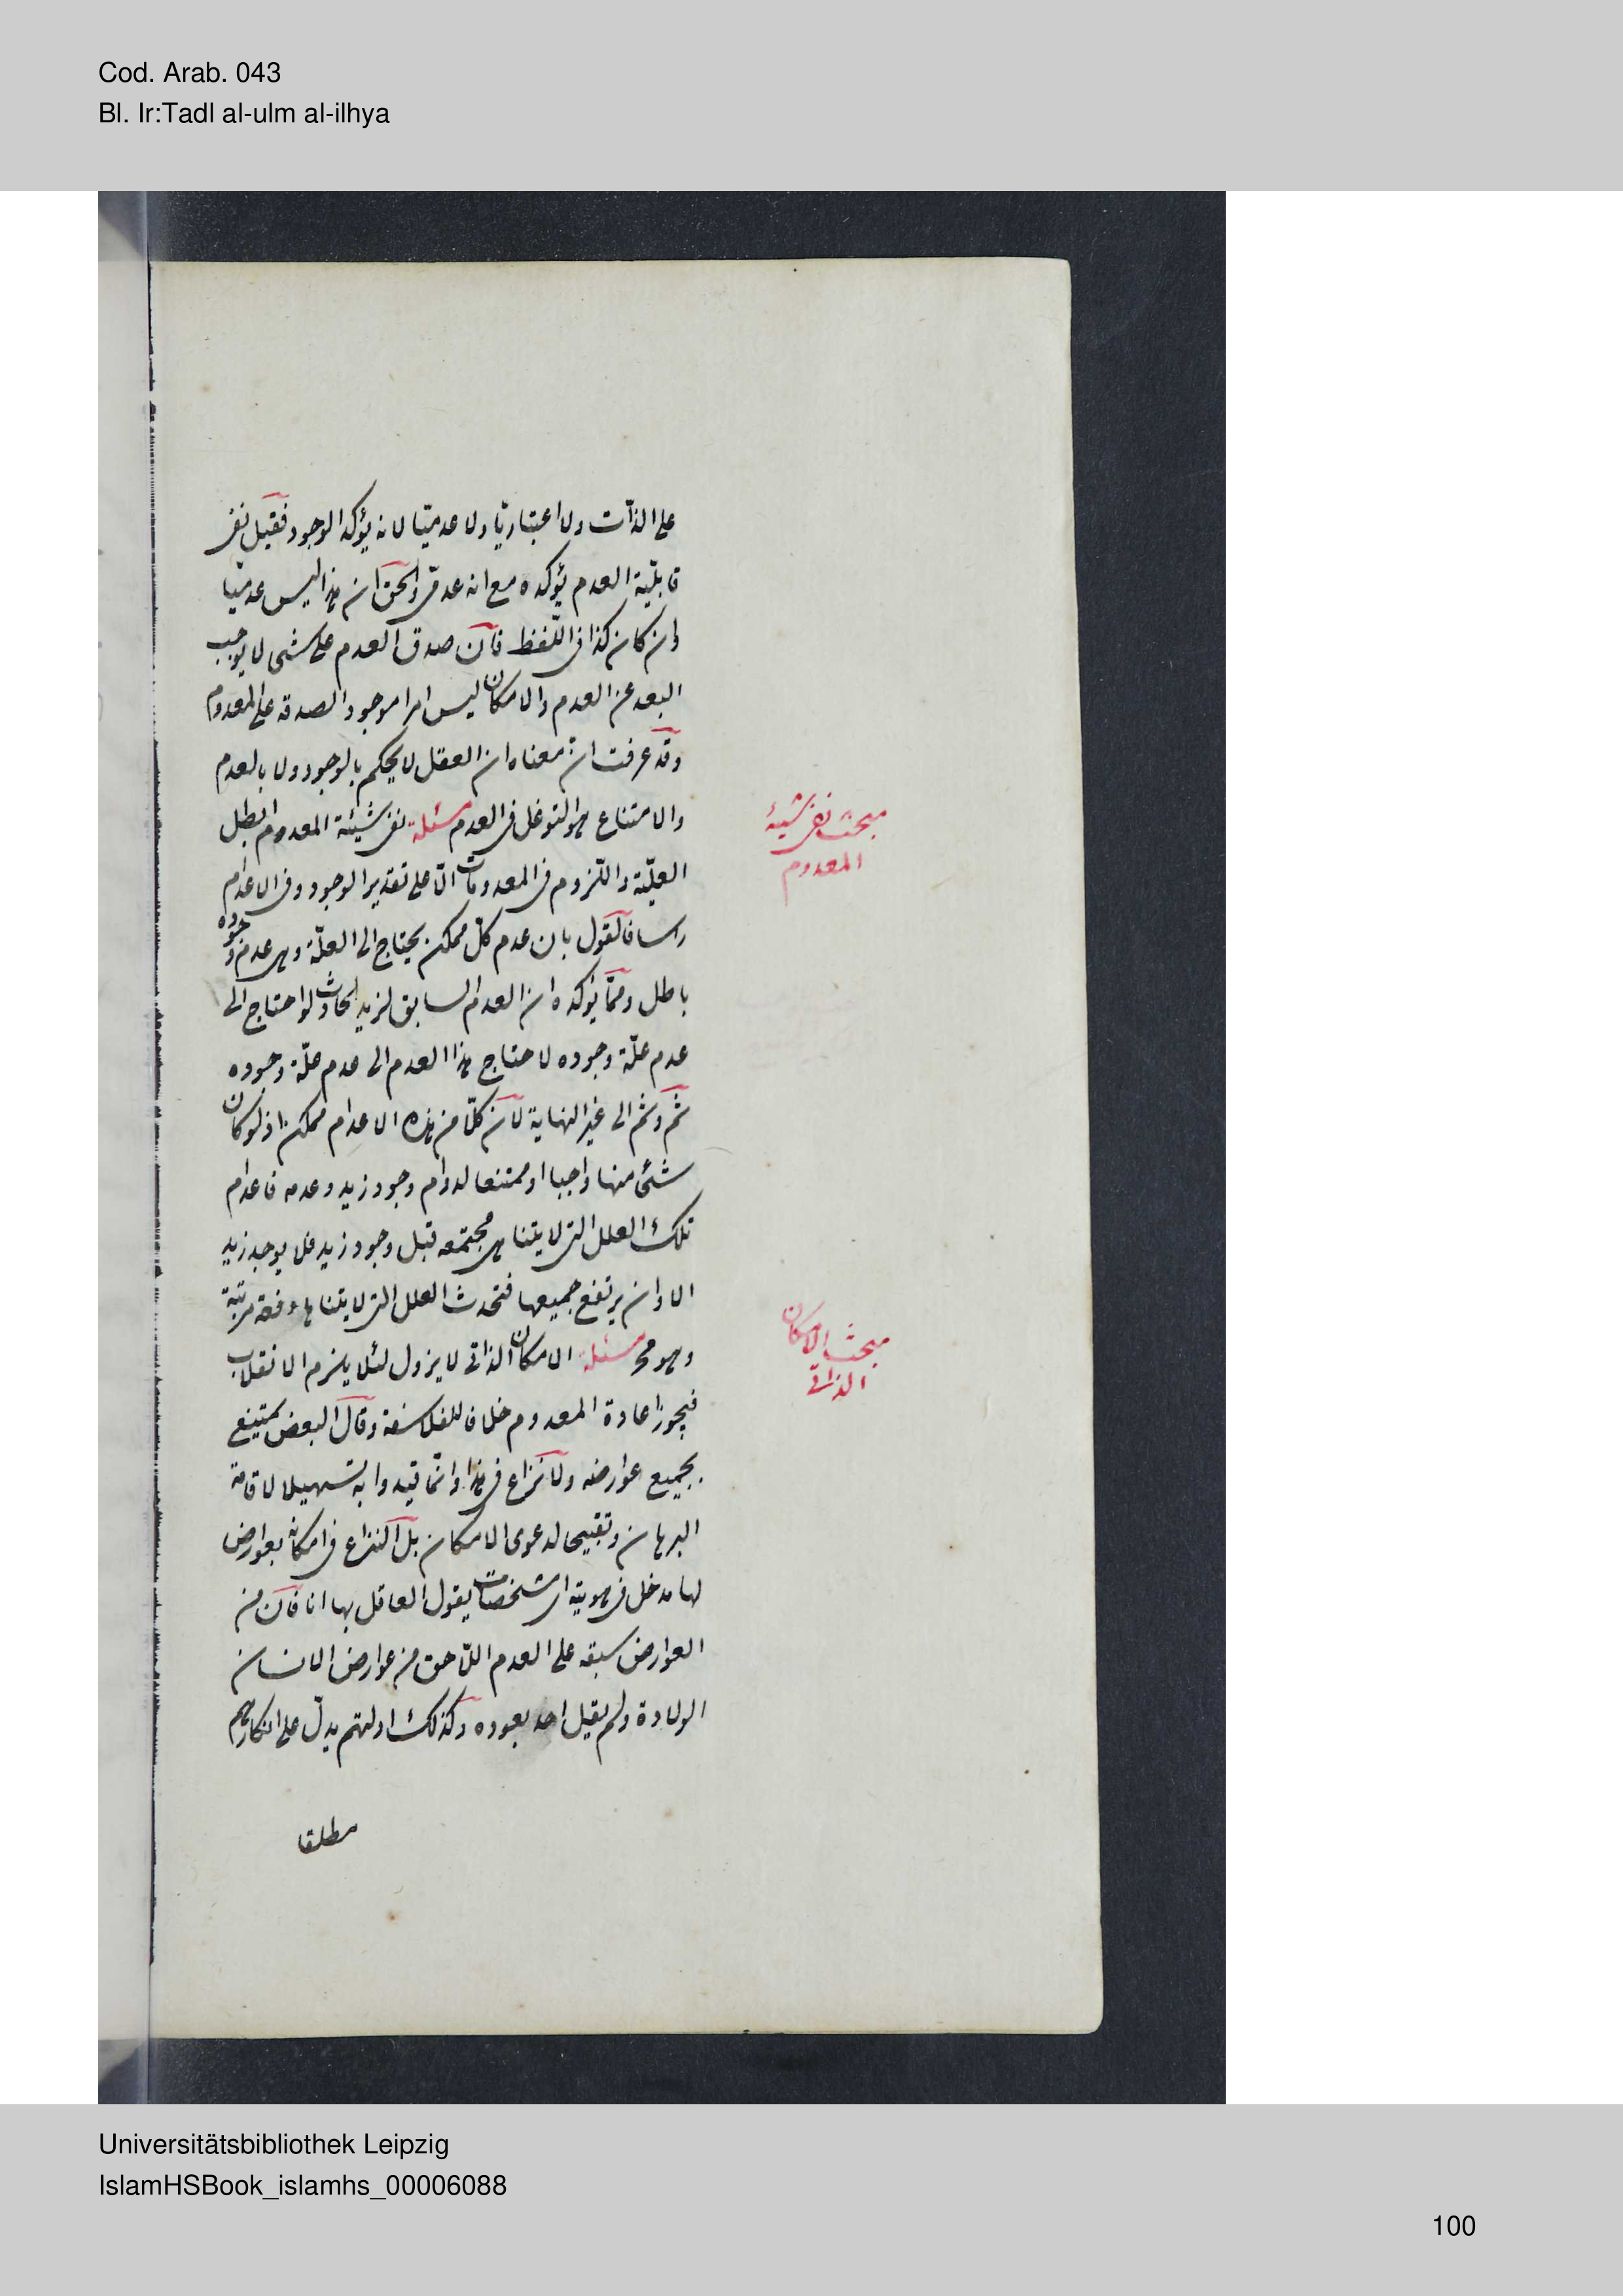 Cod. Arab. 043
Bl. Ir:Tadl al-ulm al-ilhya
على الذات ولا اعتباريا ولا عدميّا لانه يؤكد الوجود فقيل نفى
قابليّة العدم يؤكده مع انه عدمى والحق ان هذا ليس عدميّا
وان كان كذا فى اللفظ فان صدق العدم على شى لا يوجب
البعد عن العدم والامكان ليس امرا موجودا لصدقه على المعدوم
وقد عرفت ان معناه ان العقل لا يحكم بالوجود ولا بالعدم
والامتناع هو التوغل فى العدم مسئلة نفى شيئية المعدوم ابطل
العليّة واللزوم فى المعدومات الّا على تقدير الوجود وفى الاعدام
راسا فالقول بان عدم كلّ ممكن يحتاج الى العلّة وهى عدم وجوده
باطل وممّا يؤكده ان العدم السابق لزيد الحادث لو احتاج الى
عدم علّة وجوده لاحتاج هذا العدم الى عدم علّة وجوده
ثم وثم الى غير النهاية لان كلّا من هذه الاعدام ممكن اذ لو كان
شئ منها واجبا او ممتنعا لدوام وجود زيد وعدمه فاعدام
تلك العلل التى لا يتناهى مجتمعه قبل وجود زيد فلا يوجد زيد
الا وان يرتفع جميعها فتحدث العلل التى لا يتناهى دفعة مرتبة
وهو مح مسئلة الامكان الذاتى لا يزول لئلا يلزم الانقلاب
فيجوز اعادة المعدوم خلافا للفلاسفة وقال البعض يمتنع
بجميع عوارضه ولا نزاع فى هذا وانّما قيدوا به تسهيلا لاقامة
البرهان وتقبيحا لدعوى الامكان بل النزاع فى امكانه بعوارض
لها مدخل فى هويته اى مشخصات يقول العاقل بها انا فان من
العوارض سبقه على العدم اللّاحق من عوارض الانسان
الولادة ولم يقيل احد بعوده وكذلك ادلتهم يدلّ على انكارهم
مطلقا
مبحث نفى شيئية
المعدوم
مبحث الامكان
الذاتى
Universitätsbibliothek Leipzig
IslamHSBook_islamhs_00006088
100